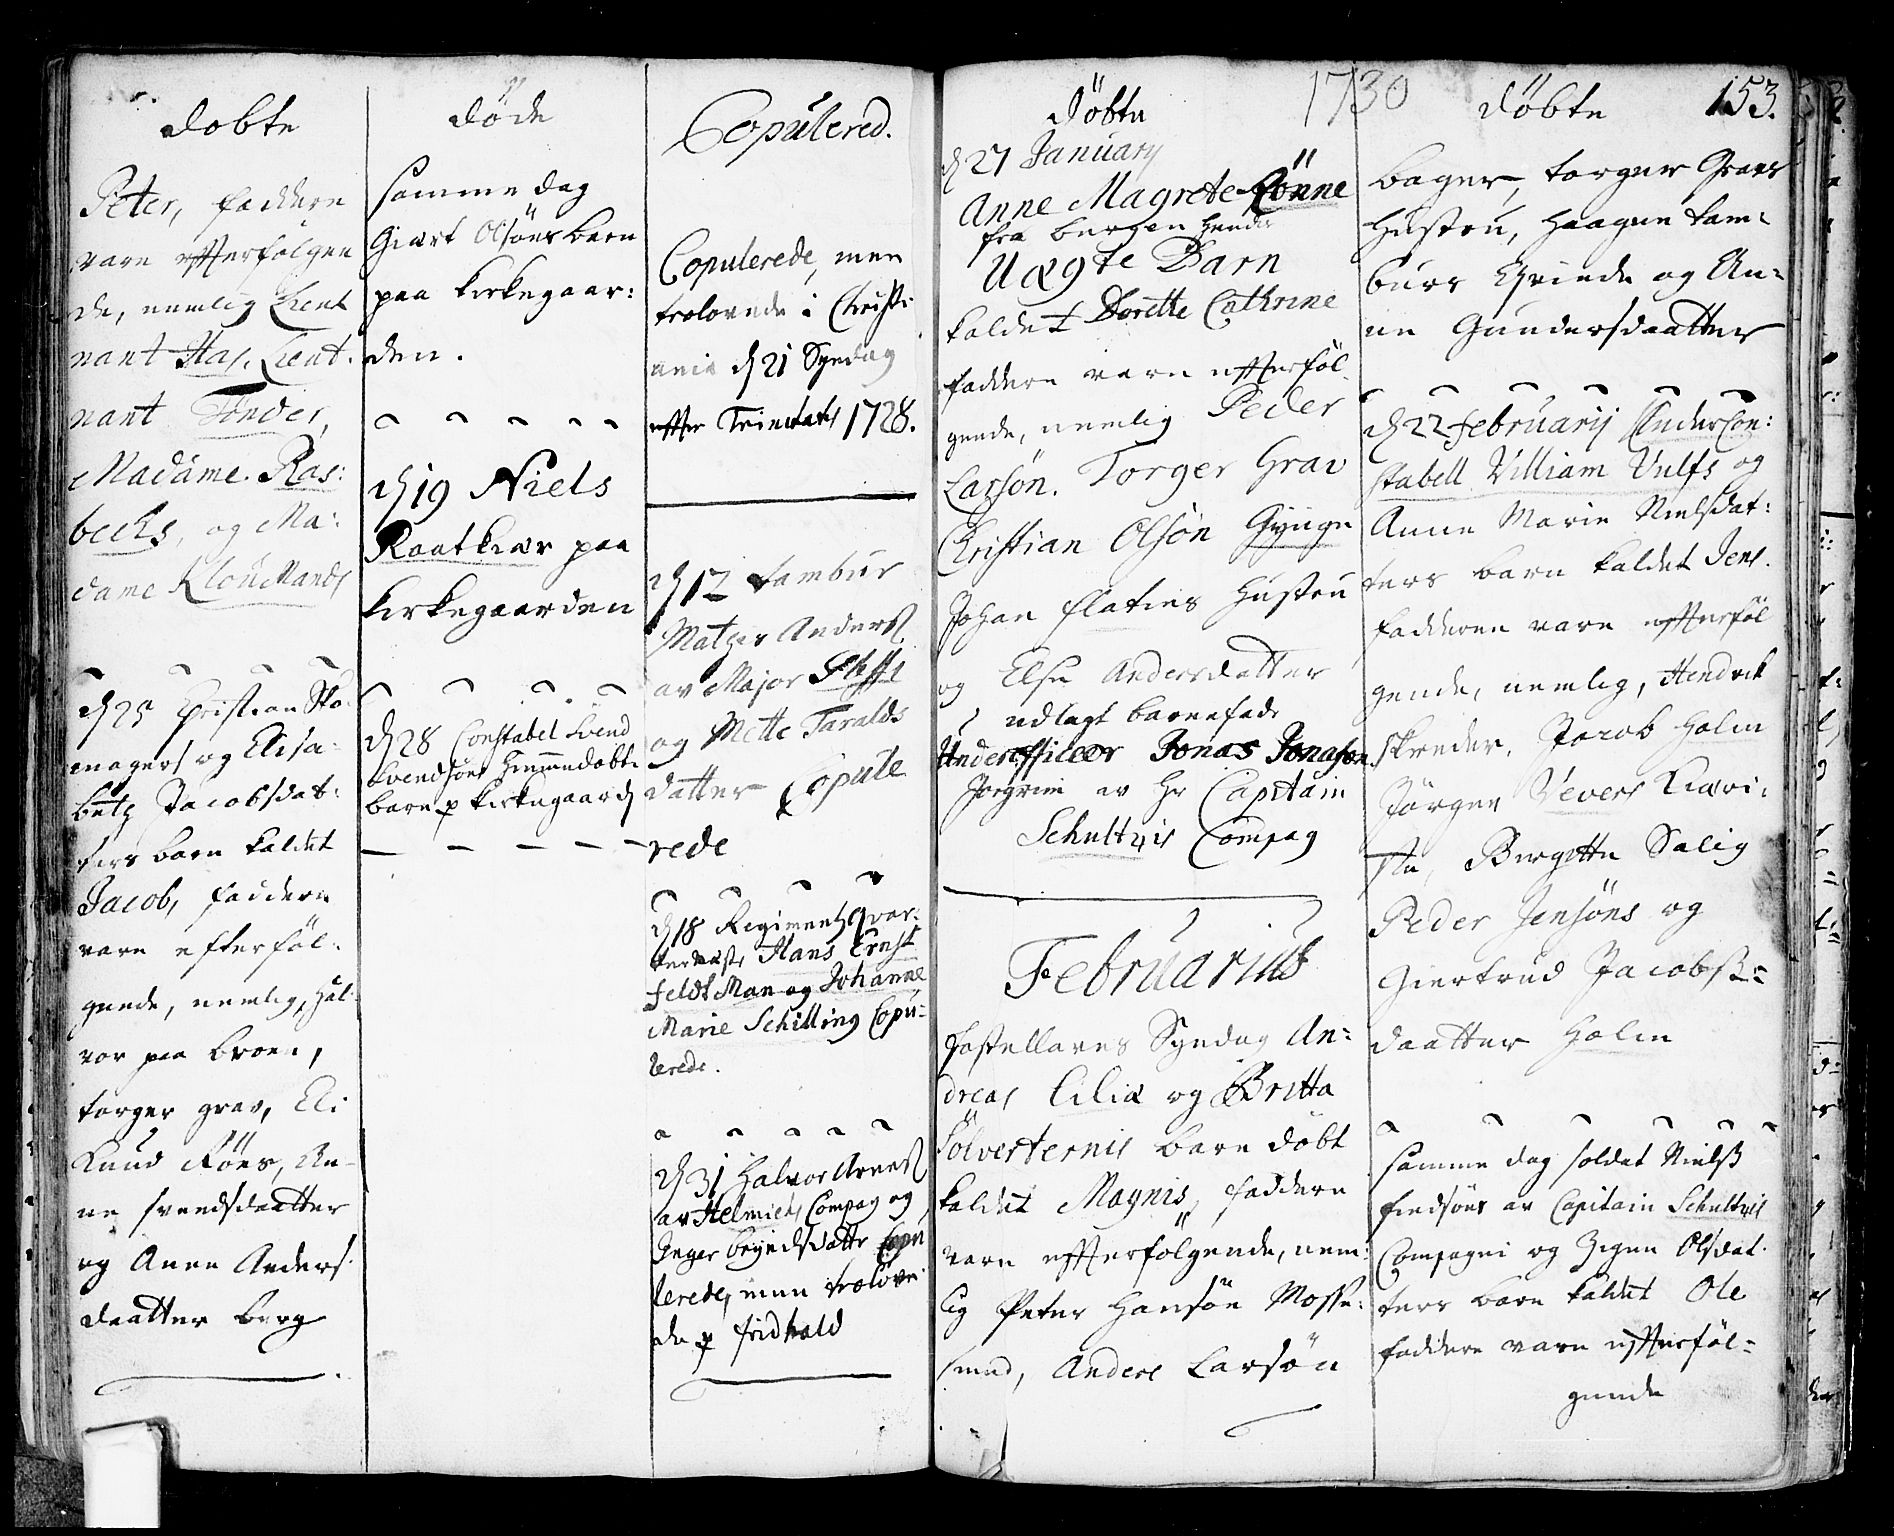 dobte
Peter, faddere
vare effterfölgen
de, nemlig Lieut
nant Has, Lieut.
nant Tönder,
Madame. Ras:
bechs, og Ma:
dame Klöüemands
d 25 Christian Sko
magers og Elisa:
beth Jacobsdat:
ters barn kaldet
Jacob, faddere
vare efterföl:
gende, nemlig, Hal:
vor paa broen,
torger grav, Eli
Knud Röes, An-
ne svendsdaatter
og Anne Anders
daatter berg
döde
samme dag
Giert Olsöns barn
paa kirkegaar:
den.
d 19 Niels
Raatkiær paa
kirkegaarden
d 28 Constabel Svend
Svendsöns hiemmedobte
barn p kirkegaard
Copülered.
Copulerede, men
trolovede i Christi
ania d 21 Syndag
effter Trinitatis 1728.
d 12 tambur
Mathis Anders
av Major
og Mette Taralds
datter Copule
rede
d 18 Regiments qvar:
termester Hans Ernst
feldt Man og Johanne
Marie Schilling Copu-
lerede.
d 31 Halvor Arnes
av Helmichs Compag og
Inger brynilsdatter Copu
lerede, men trolove
de p fridhald
1730
döbte
d 27 January
Anne Magrete Rönne
fra bergen hendis
Uægte Barn
kaldet Dorette Cathrine
faddere vare effterföl
gende, nemlig Peder
Larsön. Torger Grav
Christian Olsön Gynge
Johan flaties Hustru
og Else Andersdatter
udlagt barnefade
Underofficeer Jonas Jonasen
Jorgrim av Hr Capitain
Schultzis Compag
Februarius
fastellavns Syndag An:
dreas Ciliæ og Britta
Sölversternis barn döbt
kaldet Magnis, faddere
vare effterfölgende, nem:
lig Peter Hansön Mosse:
smed, Anders Larsön
153.
döbte
bager, torger Gravs
Hustru, Haagen tam:
burs Qvinde og An:
ne Gundersdaatter
d 22 februarij Undercon:
stabell Villiam Vulfs og
Anne Marie Nielsdat:
ters barn kaldet Jens.
fadderne vare effterföl
gende, nemlig, Hendrik
skreder, Jacob Holm
Jörgen Vevers
Birgitte Salig
Peder Jensöns og
Giertrud Jacobs=
daatter Holm
samme dag soldat Niels
findsöns av Capitain Schultzis
Compagni og Zigen Olsdat
ters barn kaldet Ole
faddere vare effterföl=
gende